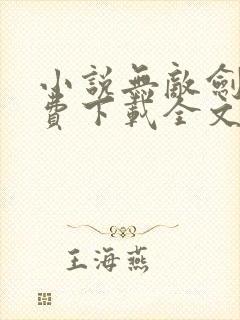 小說無敵劍
費下載全文
王海燕